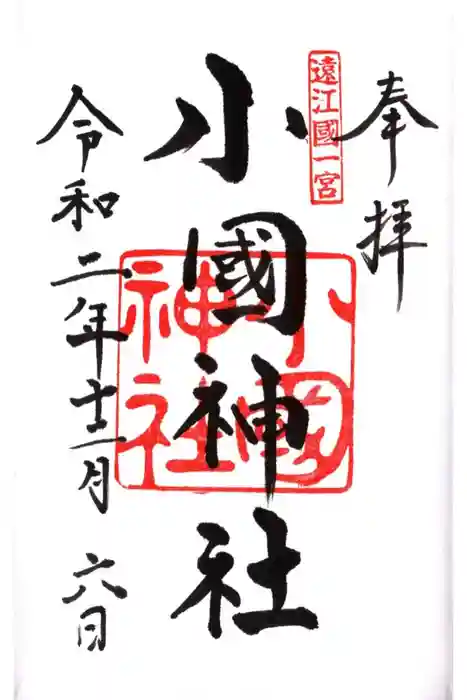 奉拝
遠江國一宮
小國神社
小國
神社
令和二年十一月六日